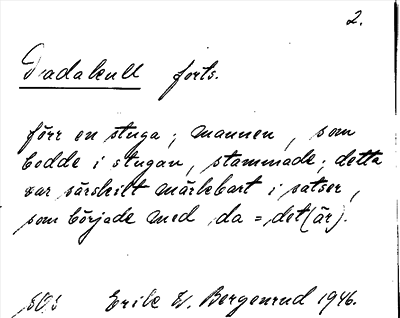 2.
Dadakull forts.
förr en stuga; mannen, som
bodde i stugan, stammade; detta
var särskilt märkbart i satser,
som började med da = det(är).
Erik W. Bergenrud 1946.